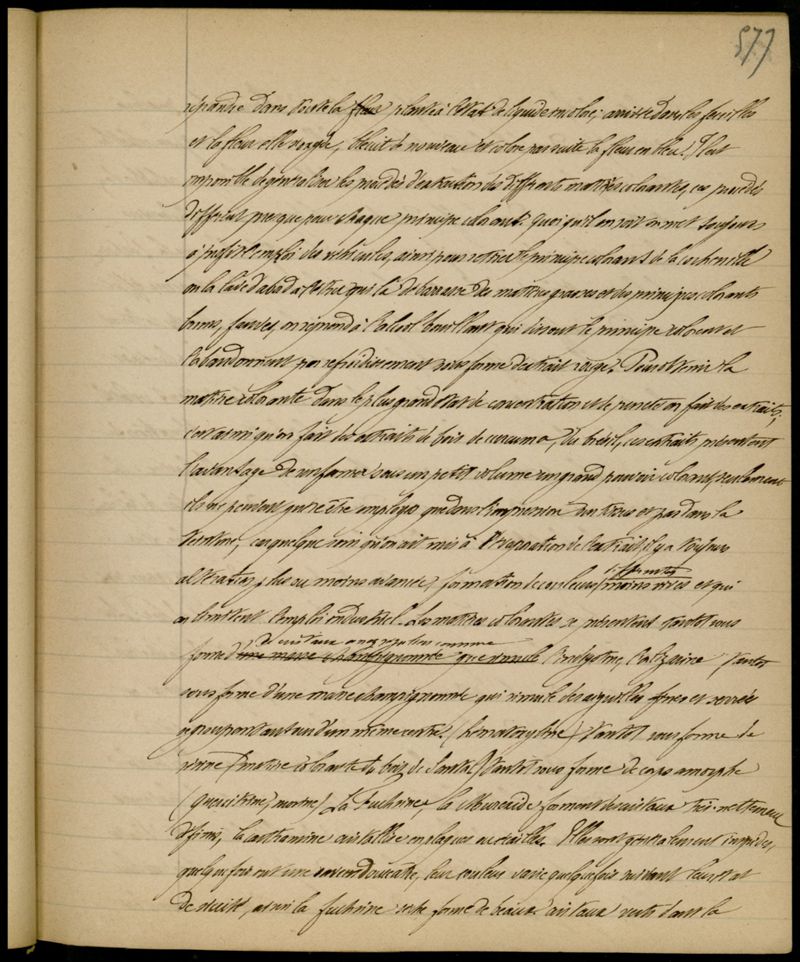 577
répandue dans toute la fleur plante à l'état de liquide incolore; arrivée dans les feuilles
et la fleur elle oxyde, bleuit de nouveau et colore par suite la fleur en bleu! Il est
impossible de généraliser les procédés d'extraction des différents matières colorantes, ces procédés
diffèrent presque pour chaque principe colorant. quoi qu'il en soit on met toujours
à profit l'emploi des véhicules, ainsi pour retirer le principe colorant de la cochenille
on la lave d'abord à l'éther qui la débarrasse des matières grasses et des principes colorants
bruns, fauves, on reprend à l'alcool bouillant qui dissout le principe colorant et
l'abandonnent par refroidissement sous forme d'extrait rouge. Pour obtenir la
matière colorante dans le plus grand état de concentration et de pureté on fait des extraits;
c'est ainsi qu'on fait des extraits de bois de curcuma, du brésil, ces extraits présentent
l'avantage de renfermer sous un petit volume un grand pouvoir colorant, seulement
ils ne peuvent guère être employés que dans l'impression des tissus et pas dans la
teinture, car quelque soin qu'on ait mis à l'évaporation de l'extrait, il y a toujours
altération plus ou moins avancée, formation de couleurs différentes moins vives et qui
en limitent l'emploi industriel. Les matières colorantes se présentent tantôt sous
de cristaux comme
forme d'une masse champignonnée que l'indigotine, l'alizarine tantôt
sous forme d'une masse champignonnée qui simule des aiguilles fines et serrées
groupant autour d'un même centre (hématoxyline) tantôt sous forme de
résine (matière colorante du bois de Santal) tantôt sous forme de corps amorphe
(quercitrine, morine) La fuchsine, la Murexide forment des cristaux très nettement
définis, la carthamine cristallise en plaques ou écailles. Elles sont généralement insipides,
quelquefois ont une saveur douceâtre, leur couleur varie quelquefois suivant leur état
de , ainsi la fuchsine sous forme de beaux cristaux verts dont la